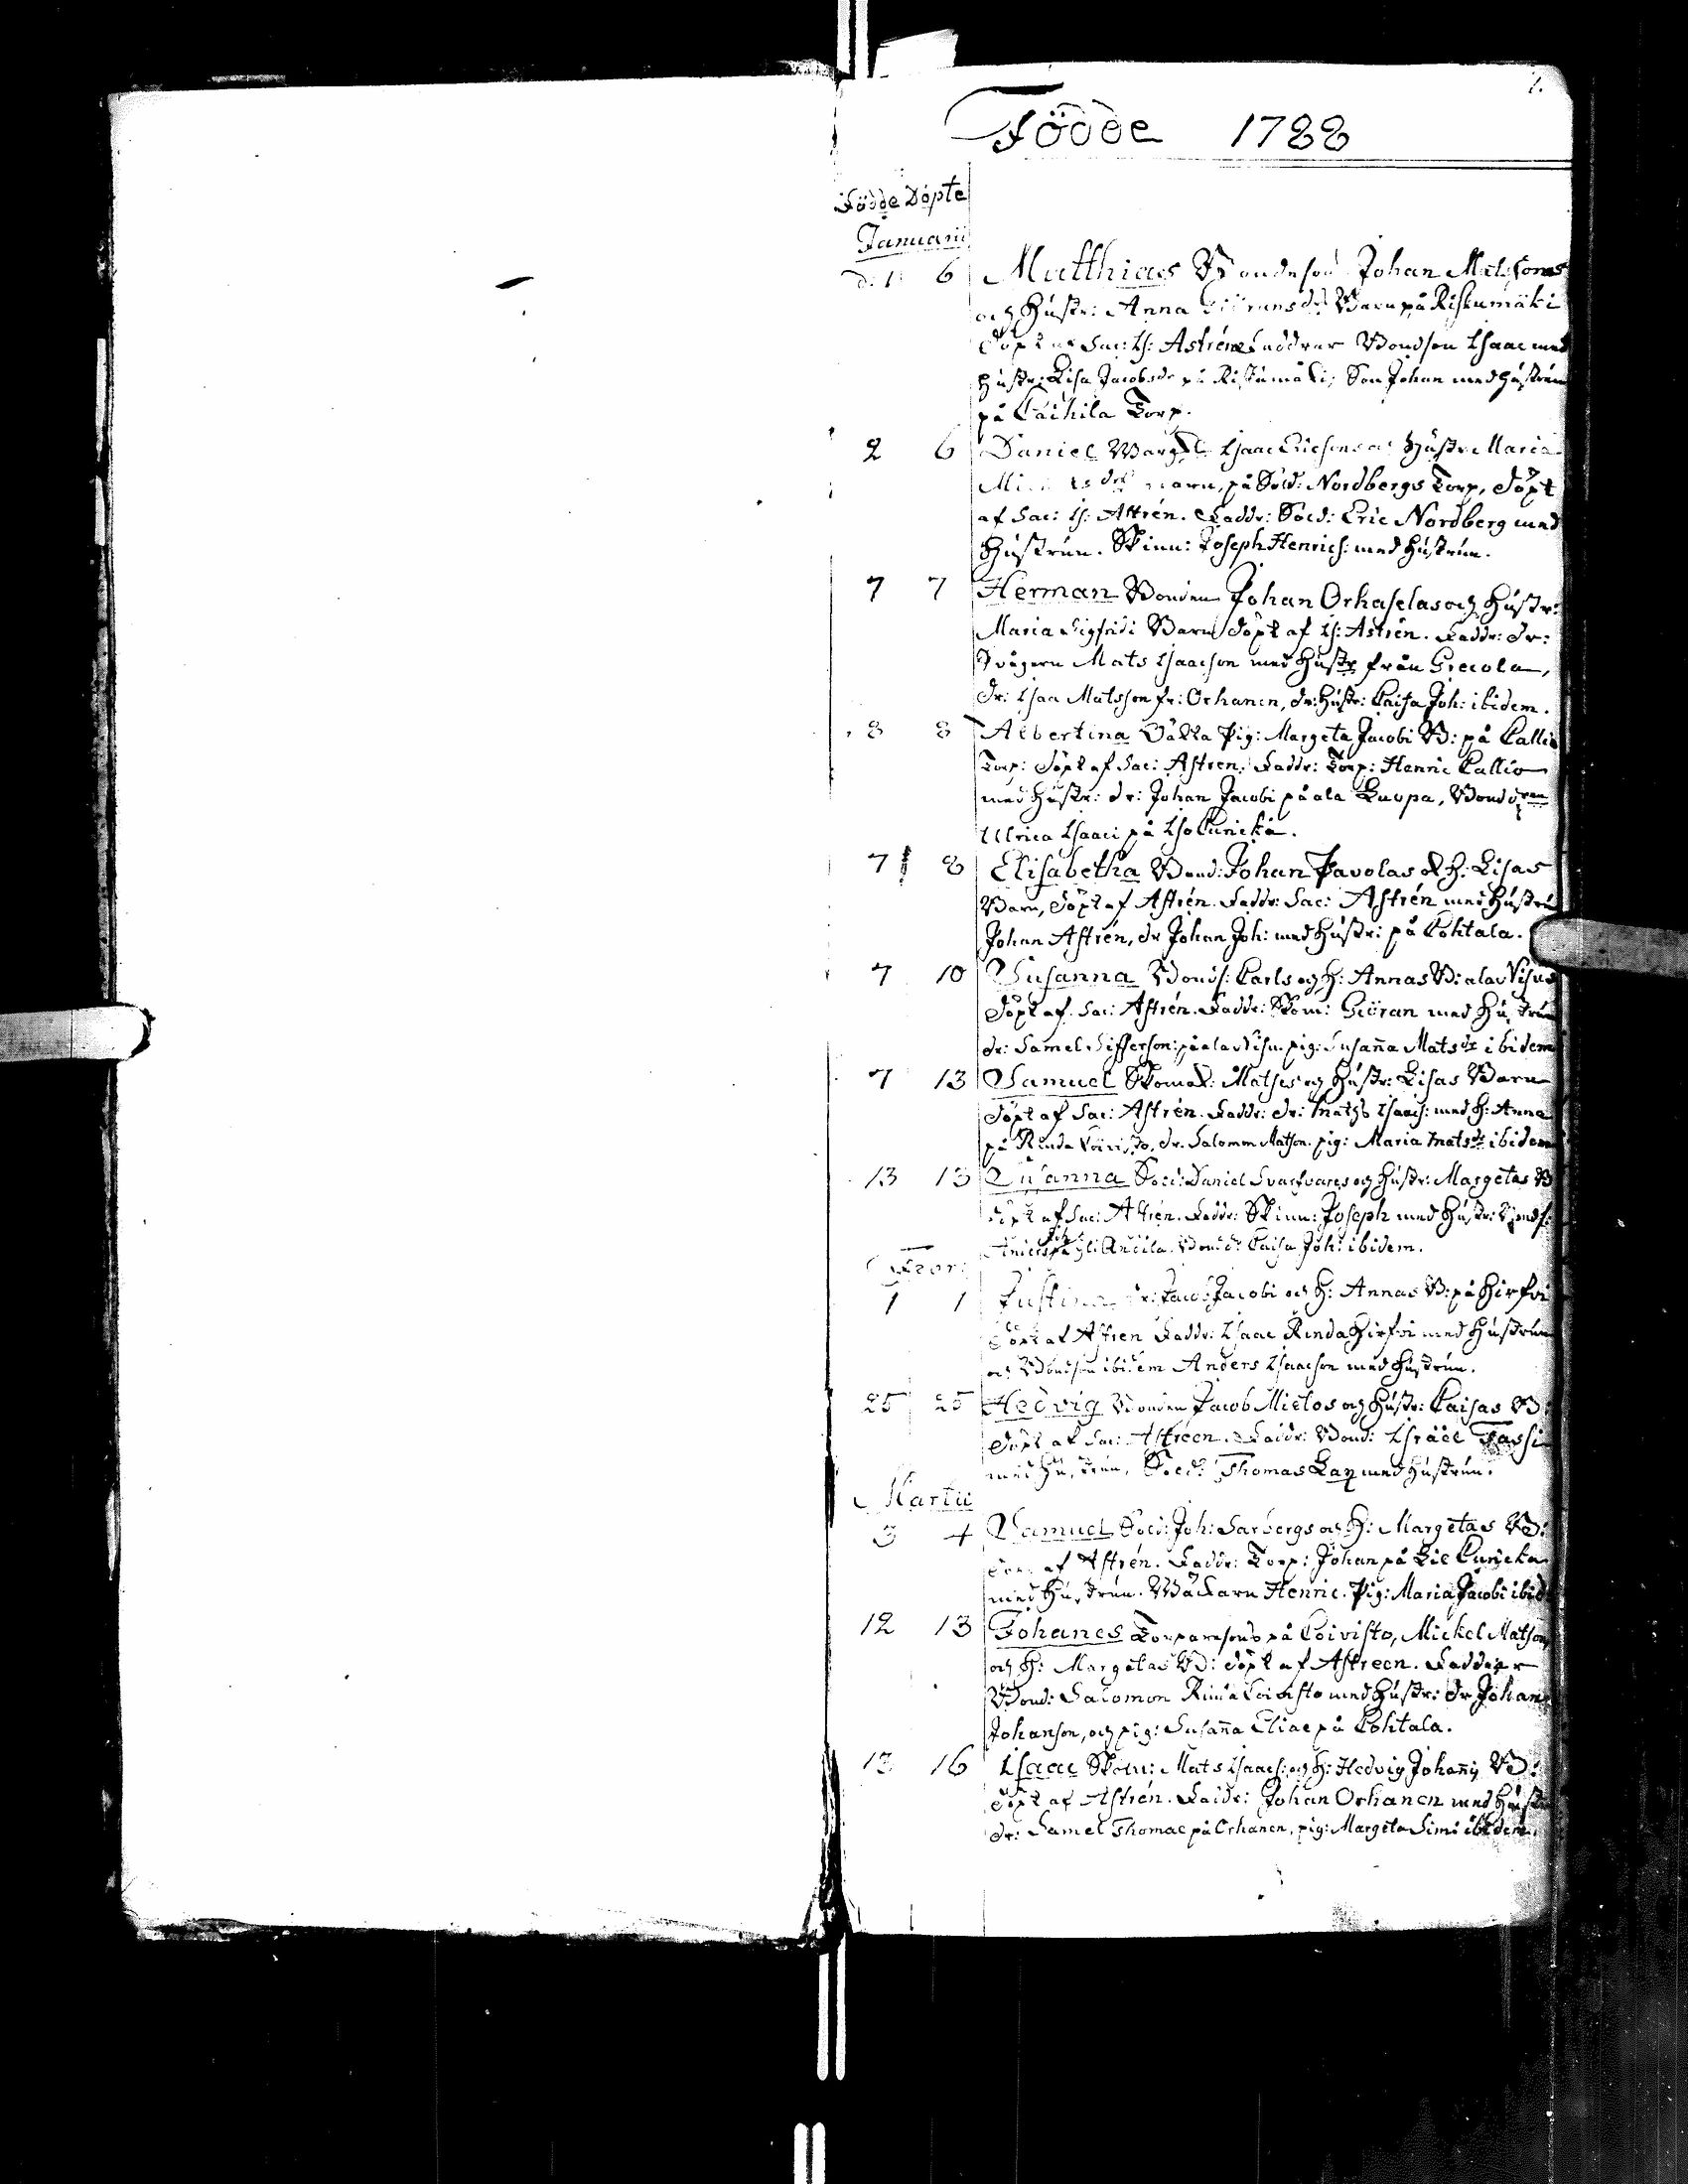 1.
Födde 1788
Födde Döpte
Januarii
d. 1 6 Matthias Bondeson Johan Matssons
och Hustr: Anna Barn på Riskumäki
döpt af Sac: Ls: Astrén Faddrar Bondson Isaac med
Hustr: Lisa Jacobsdr på Riskumäki, Son Johan med hustrun
på Caihila Torp.
2 6 Daniel Isaac Ericsons och Hustr. Maria
dotr Barn, på Sold: Nordbergs Torp, döpt
af Sac: Ls: Astrén. Faddr: Sold: Eric Nordberg med
Hustrun. Skinn: Joseph Henrics: med Hustrun.
7 7 Herman Bonden Johan Orhaselas och Hustr:
Maria Sigfridi Barn döpt af Ls: Astrén. Faddr: dr:
Svågern Mats Isaacson med Hustr från Grecola,
dr: Isaa Matsson fr: Orhanen, dr: Hustr: Caisa Joh: ibidem.
8 8 Albertina Pig: Margeta Jacobi B: på Callio
Torp: döpt af Sac: Astren. Faddr: Torp: Henric Callio
med Hustr: dr: Johan Jacobi på ala Luopa, Bond
Ulrica Isaaci på Iso Cunicka.
7 8 Elisabetha Bond: Johan Pavolas och H: Lisas
Barn, döpt af Astrén. Faddr: Sac: Astrén med Hustru
Johan Astrén, dr Johan Joh: med Hustr: på Cohtala.
7 10 Susanna Bonds: Carls och H: Annas B: ala
döpt af Sac: Astrén. Faddr: Skom: Giöran med Hustrun
dr: Samel på ala pig: Susanna Matsdr ibidem
7 13 Samuel Skomak: Matses och Hustr: Lisas Barn
döpt af Sac: Astrén. Faddr: dr: Mats Isaacs: med H: Anna
på Rinda Coivisto, dr. Salomon Matson. pig: Maria Matsdr ibidem
13 13 Susanna Sold: Daniel Svartvars och Hustr: Margetas B
döpt af Sac: Astren. Faddr: Skinn: Joseph med Hustr: Bonds:
Bond: Caisa Joh: ibidem.
Febr:
1 1 Justina dr: Jacob Jacobi och H: Annas B: på Hirfvi
döpt af Astren Faddr: Isaac Renda Hirfvi med Hustrun
och Bondson ibidem Anders Isaacson med Hustrun.
25 25 Hedvig Bonden Jacob Mietos och Hustr: Caisas B:
döpt af Sac: Astreen. Faddr: Bond: Israël Fassi
med Hustrun, Sold: Thomas med Hustrun.
Martii
3 4 Samuel Sold: Joh: Sarbergs och H: Margetas B:
döpt af Astrén. Faddr: Torp: Johan på Cunicka
med Hustrun. Henric. Pig: Maria Jacobi ibid
12 13 Johanes Torparesons på Coivisto, Mickel Matson,
och H: Margetas B: döpt af Astreen. Faddrar
Bond: Salomon Rinda Coivisto med Hustr: dr Johan
Johanson, och pig: Susanna Eliae på Cohtala.
13 16 Isaac Skom: Mats Isaacs: och H: Hedvig Johannis B:
döpt af Astrén. Faddr: Johan Orhanen med Hustr
dr: Samel Thomae på Orhanen, pig: Margeta Simi ibidem.